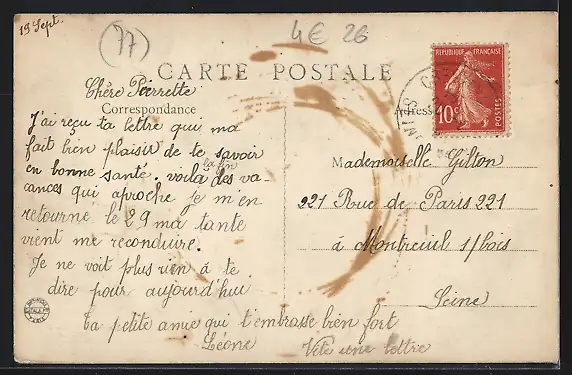 19 Sept.
(77)
4€ 26
CARTE POSTALE
Chère Pierrette
Correspondance
J'ai reçu ta lettre qui ma
fait bien plaisir de te savoir
en bonne santé. voilà la fin des va-
cances qui aproche je m'en
retourne le 29 ma tante
vient me reconduire.
Je ne voit plus rien à te
dire pour aujourd'hui
ta petite amie qui t'embrasse bien fort
Léone
Vite une lettre
REPUBLIQUE FRANÇAISE
10c
POSTES
Adresse
Mademoiselle Gilton
221 Rue de Paris 221
à Montreuil s/bois
Seine